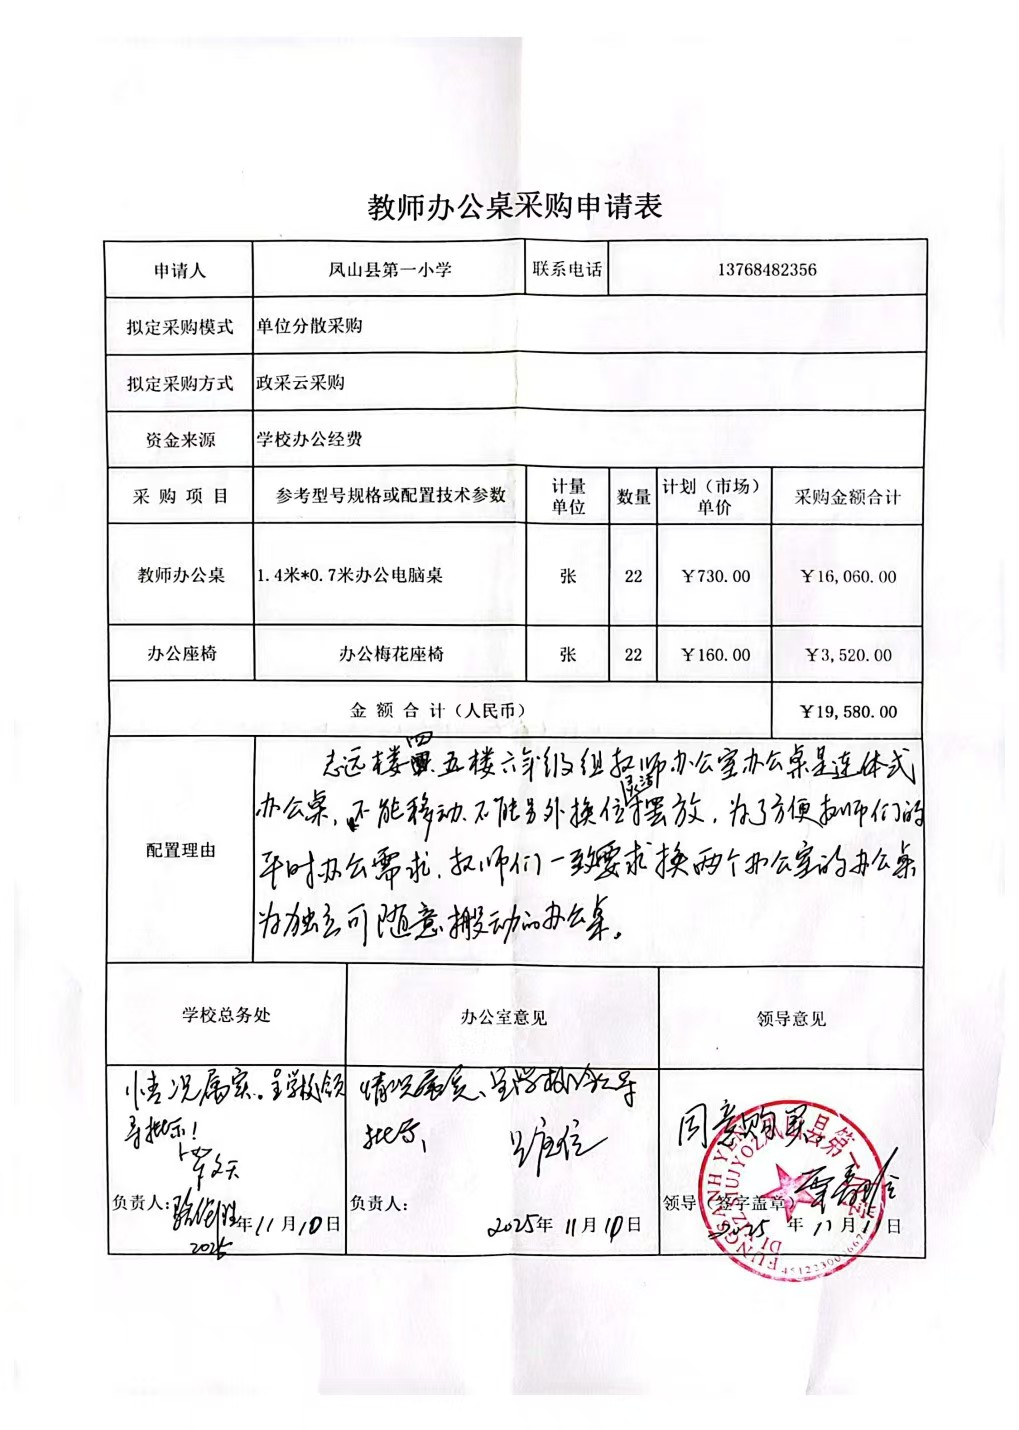 教师办公桌采购申请表
申请人 凤山县第一小学 联系电话 13768482356
拟定采购模式 单位分散采购
拟定采购方式 政采云采购
资金来源 学校办公经费
采购项目 参考型号规格或配置技术参数 计量单位 数量 计划（市场）单价 采购金额合计
教师办公桌 1.4米*0.7米办公电脑桌 张 22 ￥730.00 ￥16,060.00
办公座椅 办公梅花座椅 张 22 ￥160.00 ￥3,520.00
金额合计（人民币） ￥19,580.00
配置理由
志远楼四五楼六年级组教师办公室办公桌是连体式
办公桌，不能移动不能另外换位灵活摆放，为了方便教师们的
平时办公需求，教师们一致要求换两个办公室的办公桌
为独立可随意搬动的办公桌。
学校总务处 办公室意见 领导意见
情况属实。呈学校领
导批示！
负责人：
2025年11月10日
情况属实、呈学校领导
批示，
负责人：
2025年11月10日
同意购买。
领导（签字盖章
2025年11月11日